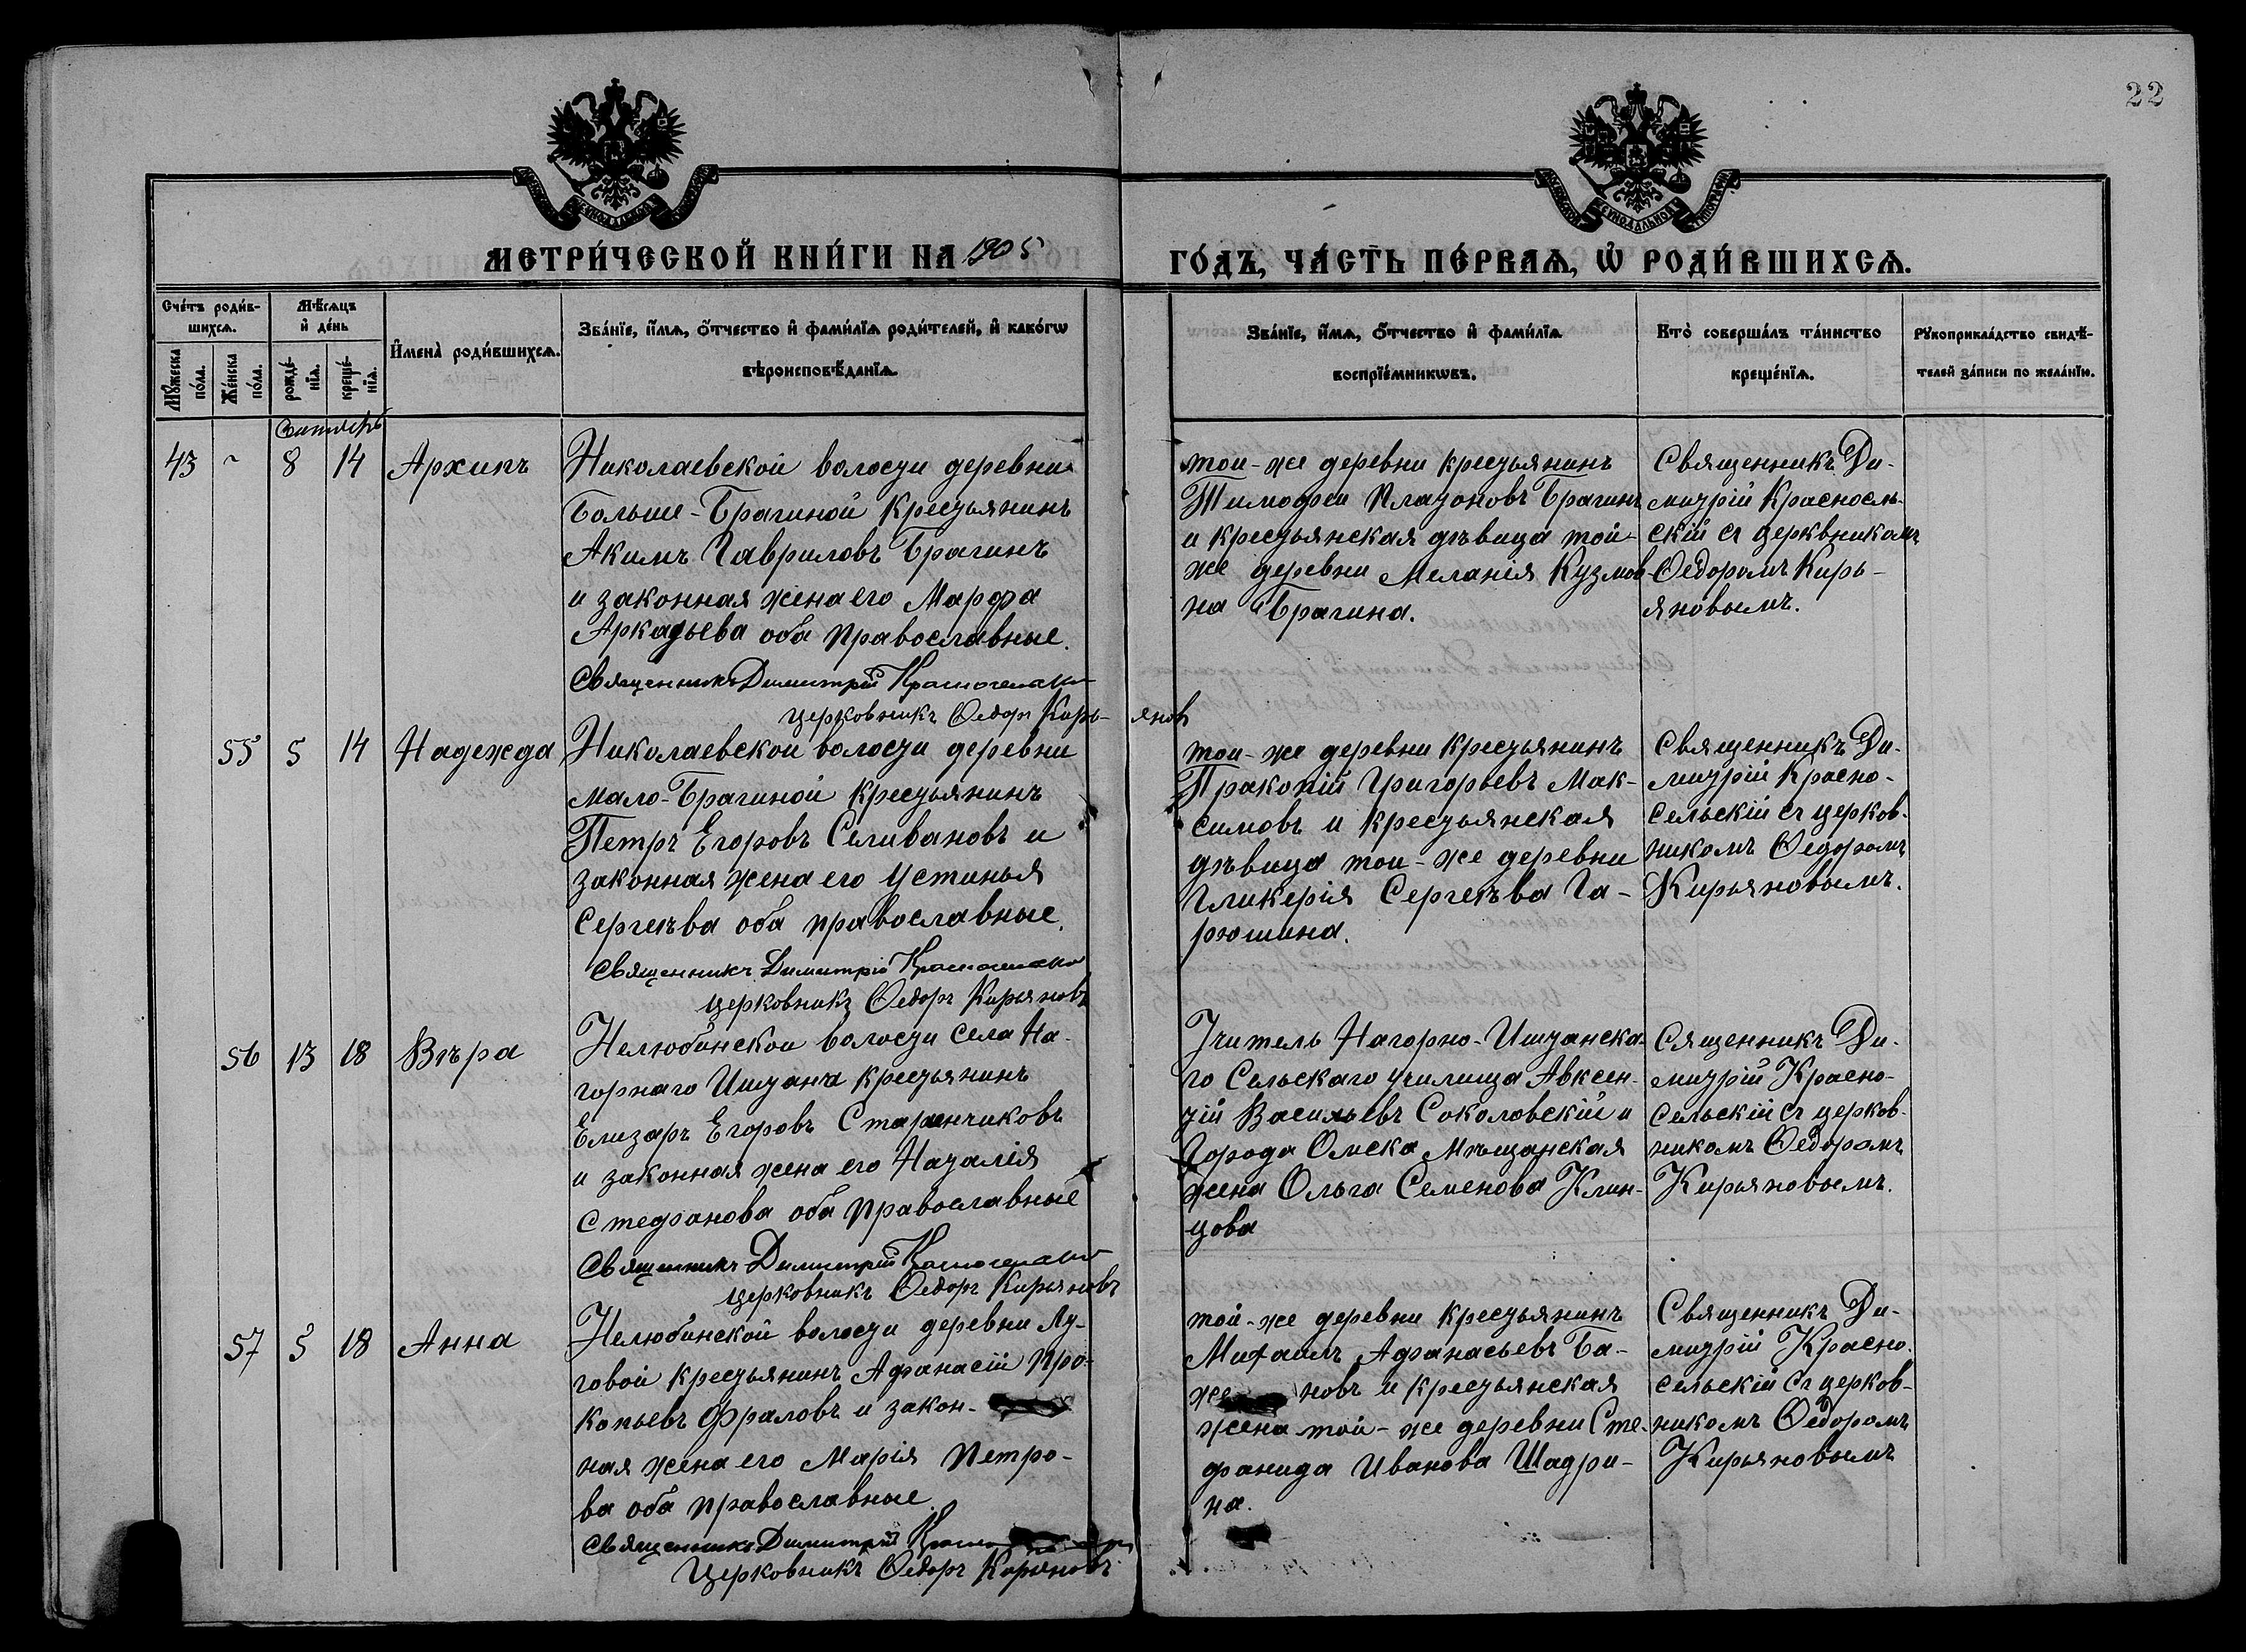 22
МЕТРИ́ЧЕСКОЙ КНИ́ГИ НА 1905
ГО́ДЪ, ЧА́СТЬ ПЕ́РВАѦ, Ѡ҆ РОДИ́ВШИХСѦ.
Сче́тъ роди́в-
шихсѧ.
Мѣ́сѧцъ
и҆ де́нь
Мꙋ́жеска
по́ла.
Же́нска
по́ла.
рожде́-
нїѧ.
креще́-
нїѧ.
И҆мена̀ роди́вшихсѧ.
Зва́нїе, и҆́мѧ, ѻ҆́тчество и҆ фами́лїѧ роди́телей, и҆ како́гѡ
вѣроисповѣ́данїѧ.
Зва́нїе, и҆́мѧ, ѻ҆́тчество и҆ фами́лїѧ
воспрїе́мникѡвъ.
Кто̀ соверша́лъ та́инство
креще́нїѧ.
Рꙋкоприкла́дство свидѣ́-
телей за́писи по жела́нїю.
Сентябрь
43 8 14 Архипъ
Николаевской волости деревни
Больше-Брагиной крестьянинъ
Акимъ Гавриловъ Брагинъ
и законная жена его Марфа
Аркадьева оба православные.
Священникъ Димитрій Красносельскій
Церковникъ Ѳедоръ Кирь-
яновъ
той-же деревни крестьянинъ
Тимофей Платоновъ Брагинъ
и крестьянская дѣвица той-
же деревни Меланія Кузмов-
на Брагина.
Священникъ Ди-
митрій Красносль-
скій съ церквникомъ
Ѳедоромъ Кирь-
яновымъ.
55 5 14 Надежда
Николаевской волости деревни
Мало-Брагиной крестьянинъ
Петръ Егоровъ Селивановъ и
законная жена его Устинья
Сергѣева оба православные.
Священникъ Димитрій Красносельскій
Церковникъ Ѳедоръ Кирьяновъ
той-же деревни крестьянинъ
Пракопій Григорьевъ Мак-
симовъ и крестьянская
дѣвица той-же деревни
Гликерія Сергѣева Га-
рюшина.
Священникъ Ди-
митрій Красно-
сельскій съ церков-
никомъ Ѳедоромъ
Кирьяновымъ.
56 13 18 Вѣра
Нелюбинской волости села На-
горнаго Иштана крестьянинъ
Елизаръ Егоровъ Старенчиковъ
и законная жена его Наталія
Стефанова оба православные
Священникъ Димитрій Красносельскій
Церковникъ Ѳедоръ Кирьяновъ
Учитель Нагорно-Иштанска-
го Сельскаго училища Авксен-
тій Васильевъ Соколовскій и
города Омска Мѣщанская
жена Ольга Семенова Клин-
цова
Сященникъ Ди-
митрій Красно-
сельскій съ церков-
никомъ Ѳедоромъ
Кирьяновымъ.
57 5 18 Анна
Нелюбинской волости деревни Лу-
говой крестьянинъ Афанасій Про-
копьевъ Фраловъ и закон-
ная жена его Марія Петро-
ва оба православные.
Священникъ Димитрій
Церковникъ Ѳедоръ Кирьяновъ
той-же деревни крестьянинъ
Михаилъ Афанасьевъ Ба-
же новъ и крестьянская
жена той-же деревни Сте-
фанида Иванова Шадри-
на.
Священникъ Ди-
митрій Красно-
сельскій съ церков-
никомъ Ѳедоромъ
Кирьяновымъ